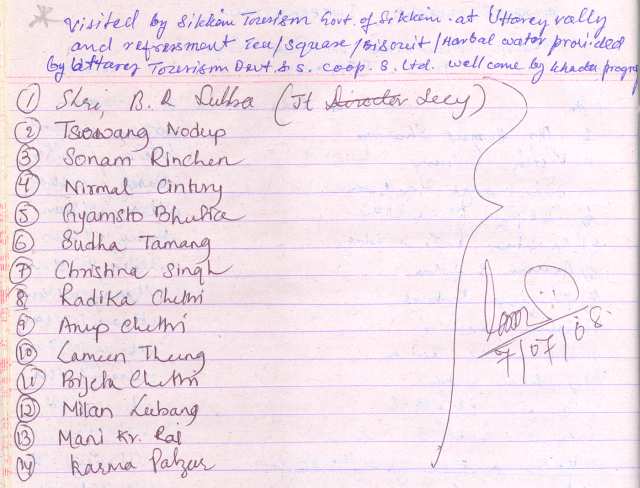 Visited by Sikkim Tourism Govt. of Sikkim. at Uttarey rally
and refresment Tea/Squase/Biscuit/Harbal water provided
by Uttarey Tourism Devt. & S. Coop. S. Ltd. well come by khada progr
① Shri, B. R Subba (Jt Director Secy)
② Tsewang Nodup
③ Sonam Rinchen
④ Nirmal Cintury
⑤ Gyamsto Bhutia
⑥ Sudha Tamang
⑦ Christina Singh
⑧ Radika Chettri
⑨ Anup Chettri
⑩ Lameen Theeng
⑪ Brijeta Chettri
⑫ Milan Lubang
⑬ Mani Kr. Rai
⑭ Karma Palzar
7/07/08.